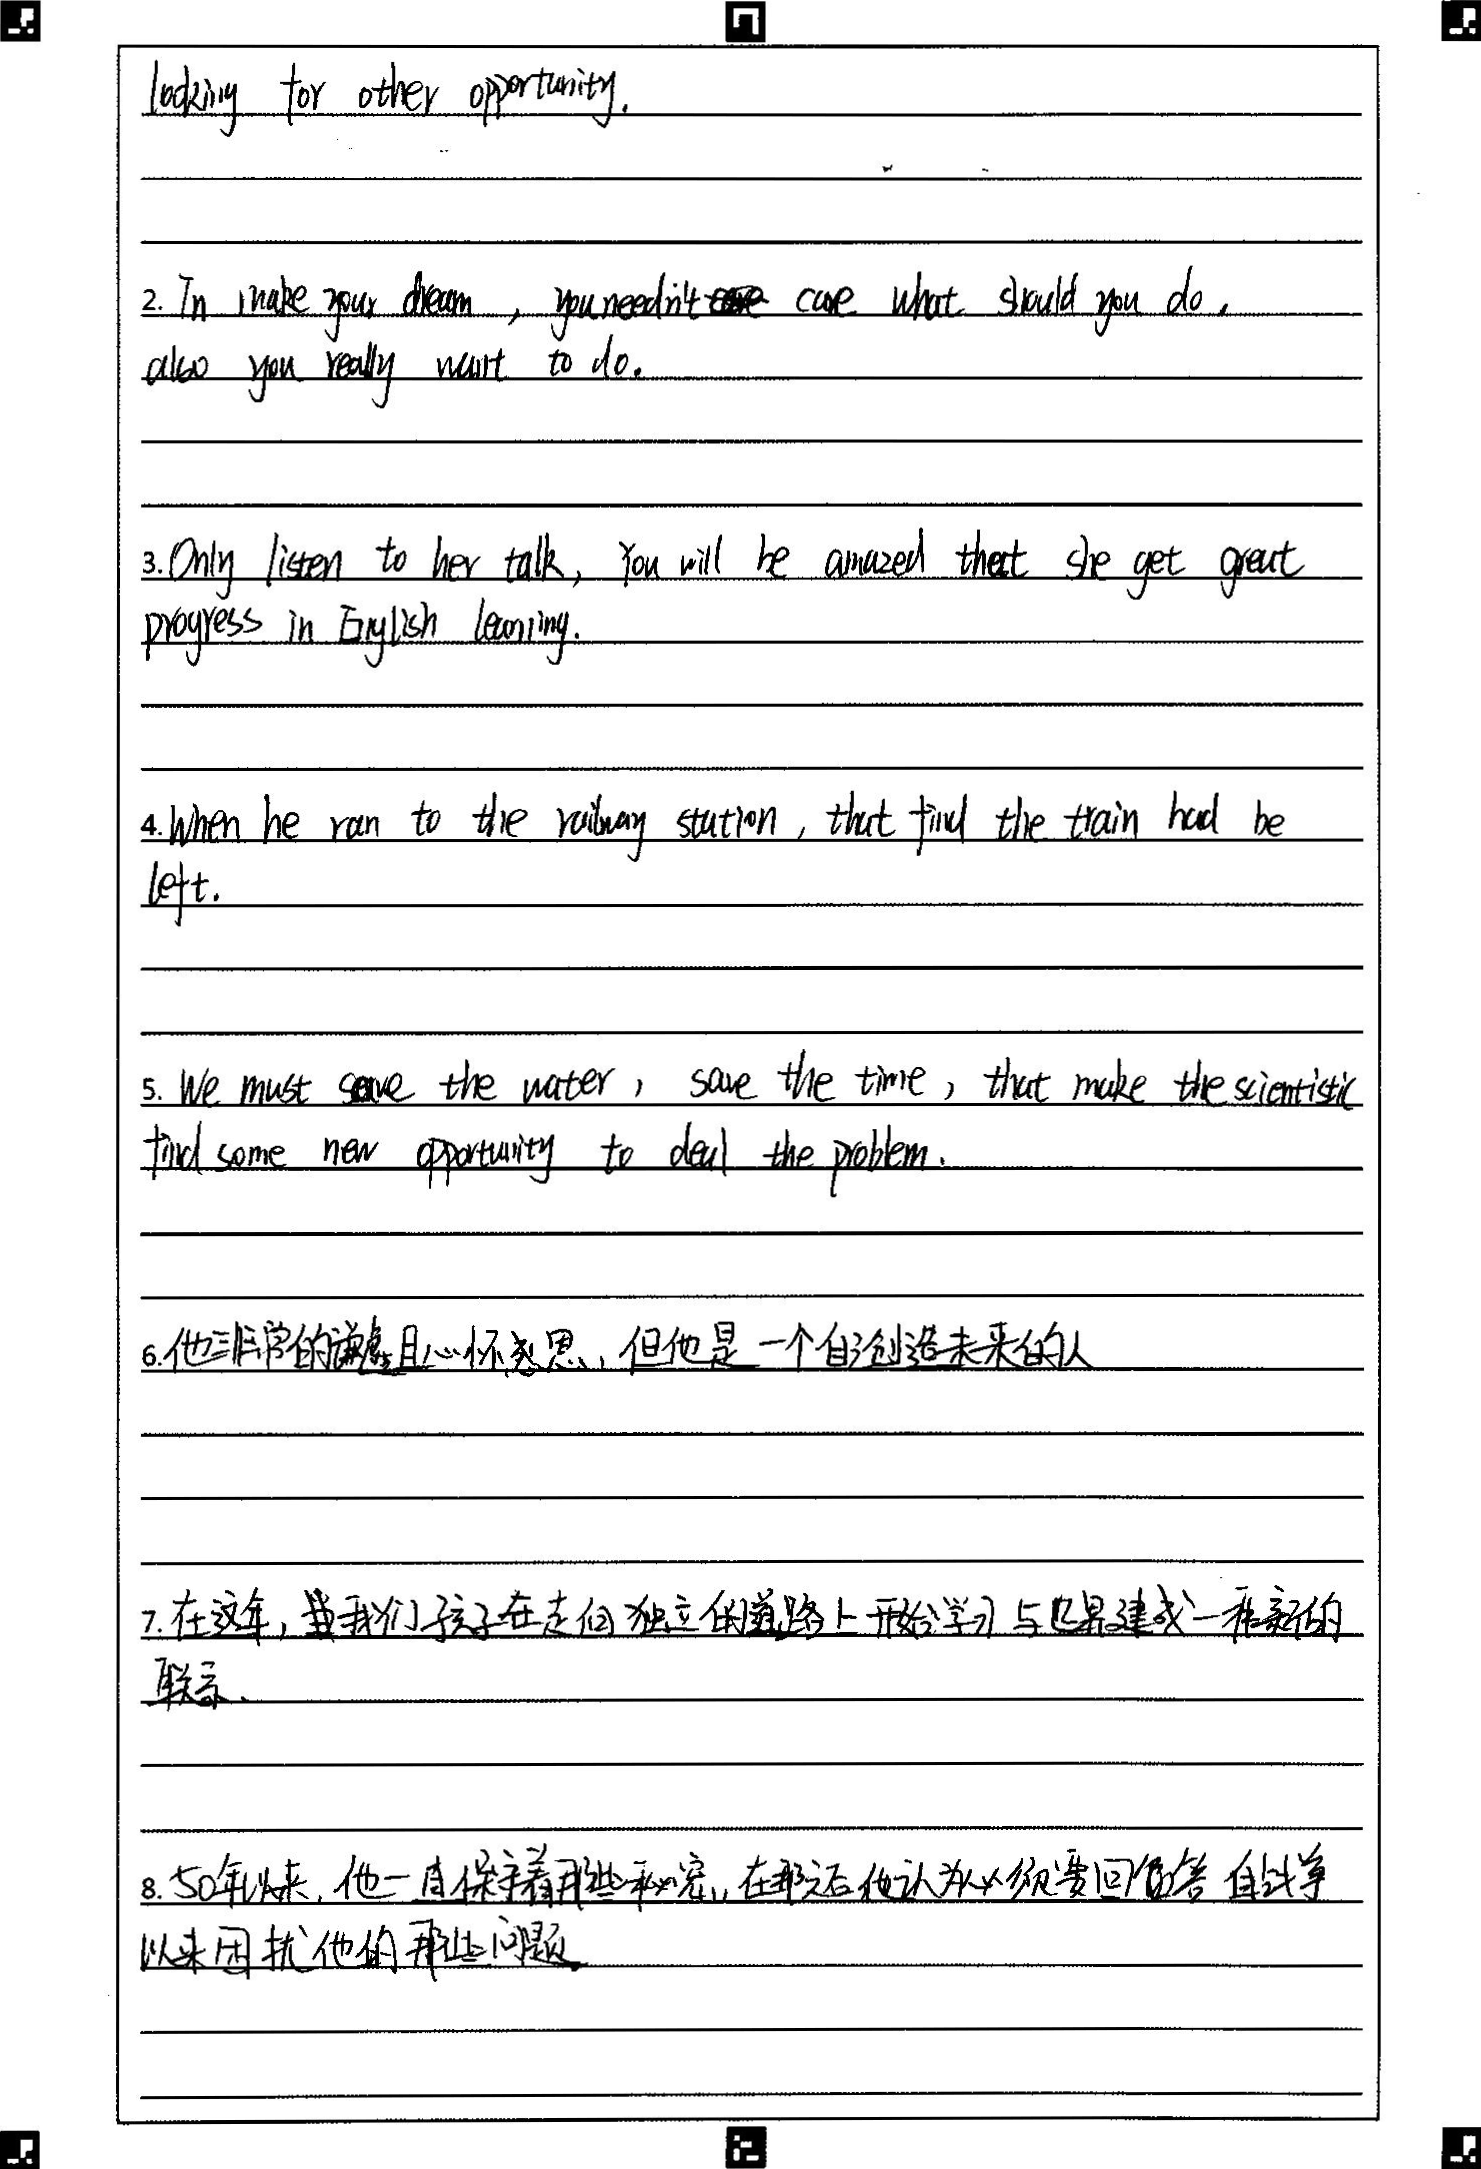 looking for other opportunity.
2. In make your dream, you needn't care what should you do,
also you really want to do.
3. Only listen to her talk, You will be amazed that she get great
progress in English learning.
4. When he ran to the railway station, that find the train had be
left.
5. We must save the water, save the time, that make the scientistic
find some new opportunity to deal the problem.
6. 他非常的谦虚且心怀感恩, 但他是一个自己创造未来的人
7. 在这年, 当我们孩子在走向独立的道路上开始学习与世界建成一种新的
联系.
8. 50年以来, 他一直保守着那些秘密, 在那之后他认为必须要回答自战争
以来困扰他的那些问题.